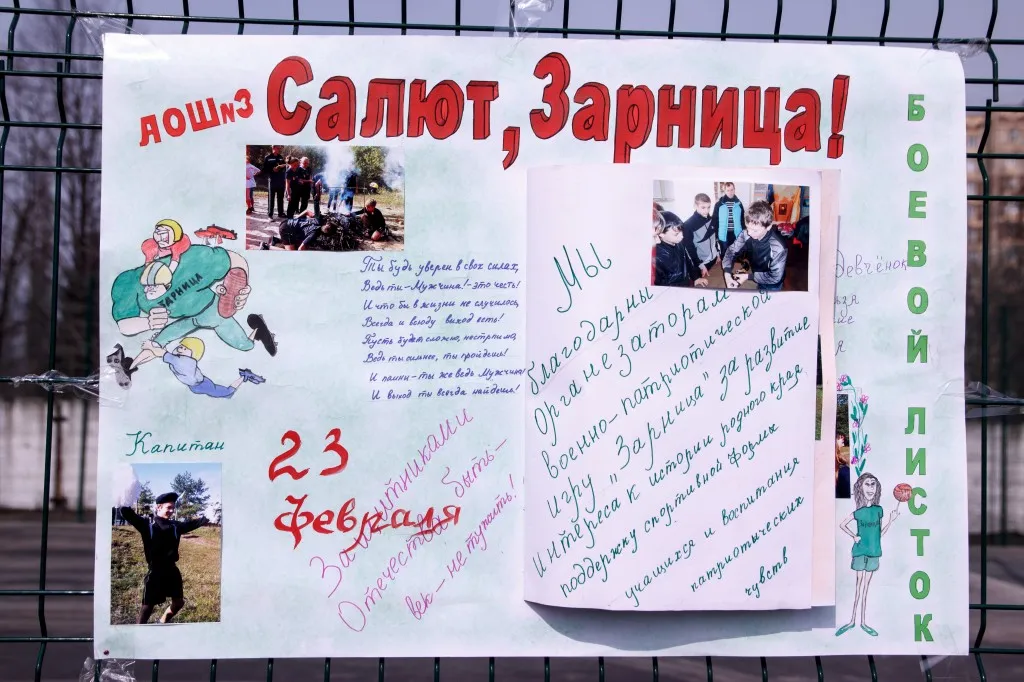 ЛОШ№3
Салют, Зарница!
БОЕВОЙ ЛИСТОК
ЗАРНИЦА
Ты будь уверен в свох силах,
Ведь ти-Мужчина!-это честь!
И что би в жизни не случилось,
Всегда и всюду выход есть!
Пусть будет сложно, нестрашно,
Ведь ты сильнее, ты пройдешь!
И помни-ты же ведь Мужчина
И выход ты всегда найдешь!
Капитан
23
февраля
Защитниками
Отечества быть-
век-не тужить!
Мы
благодарны
Организаторам
военно-патриотической
игру „Зарница" за развитие
Интереса к истории родного края
поддержку спортивной формы
учашихся и воспитания
патриотических
чувств
девчёнок